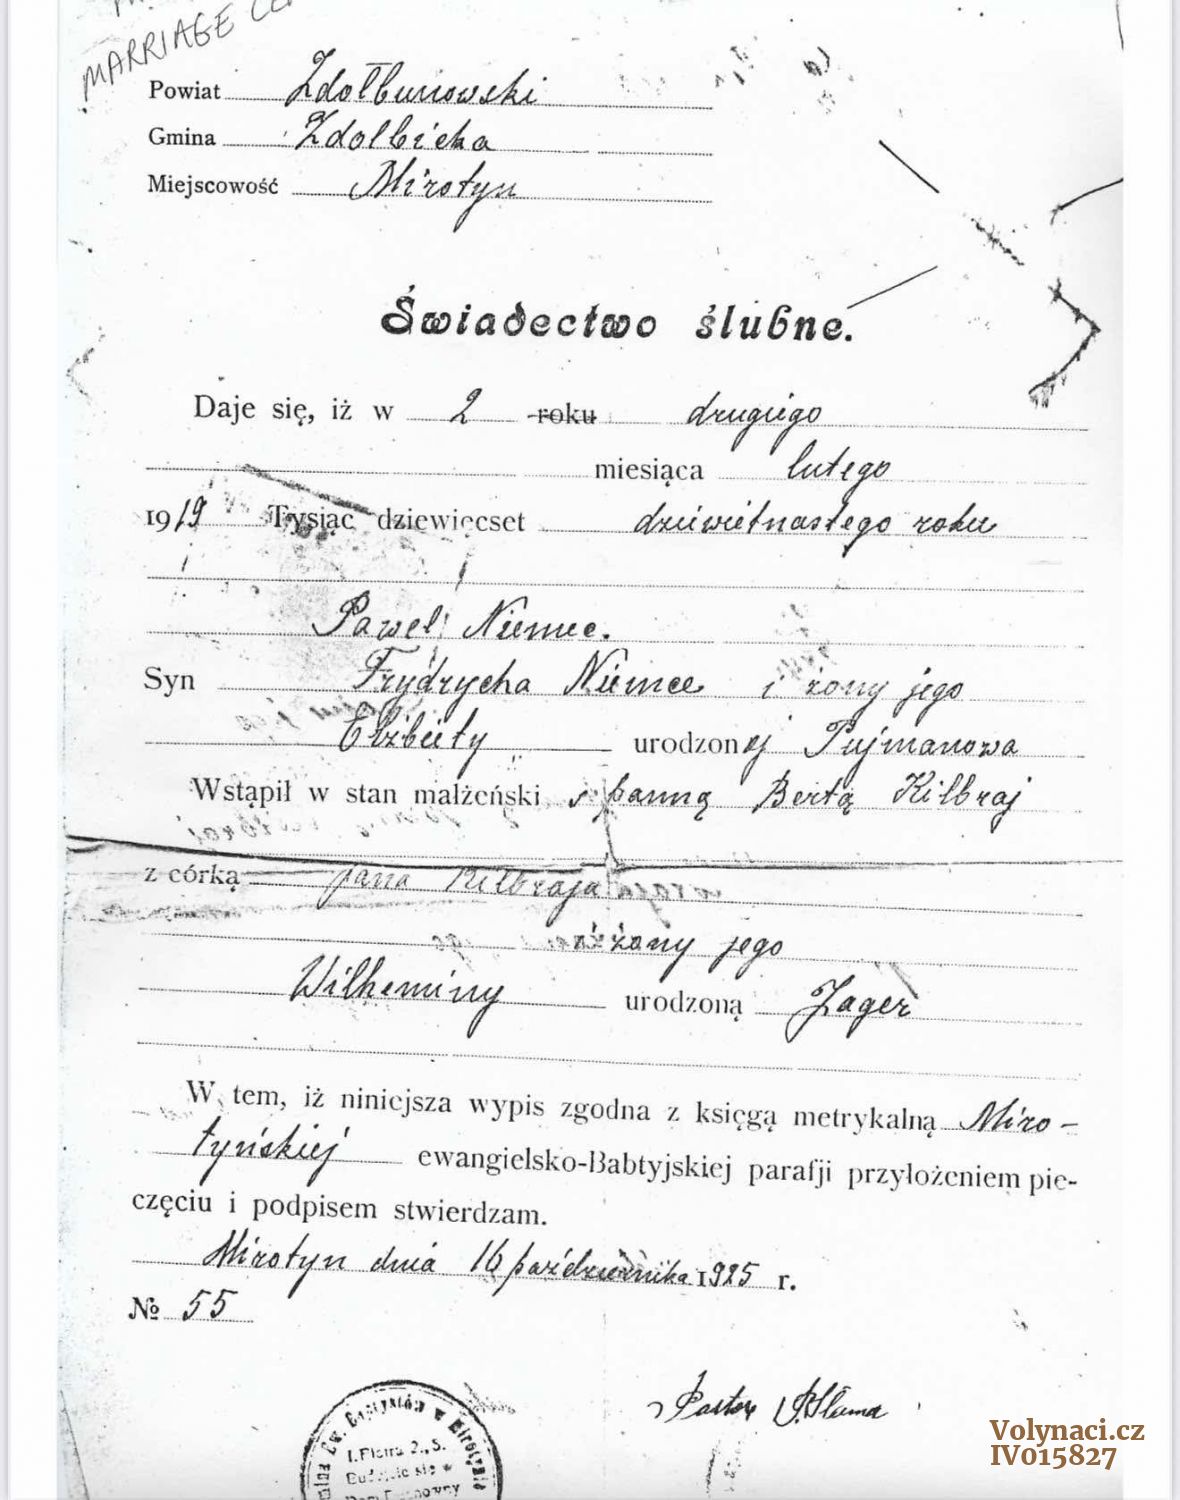 MARRIAGE
Powiat Zdołbunowski
Gmina Zdolbicka
Miejscowość Mirotyn
Świadectwo ślubne.
Daje się, iż w 2 roku drugiego
miesiąca lutego
1919 Tysiąc dziewięcset dziewietnastego roku
Paweł Niemec.
Syn Frydrycha Niemce i żony jego
Elżbiety urodzonej Pujmanowa
Wstąpił w stan małżeński s panną Bertą Kilbraj
z córką Jana Kilbraja
i żony jego
Wilheminy urodzoną Jager
W tem, iż niniejsza wypis zgodna z księgą metrykalną Miro-
tyńskiej ewangielsko-Babtyjskiej parafji przyłożeniem pie-
częciu i podpisem stwierdzam.
Mirotyn dnia 16 października 1925 r.
№ 55
Pastor
Baptystów w Mirotynie
I. Piotra 2., 5.
Budujcie się w
Dom Duchowny
Volynaci.cz
IV015827